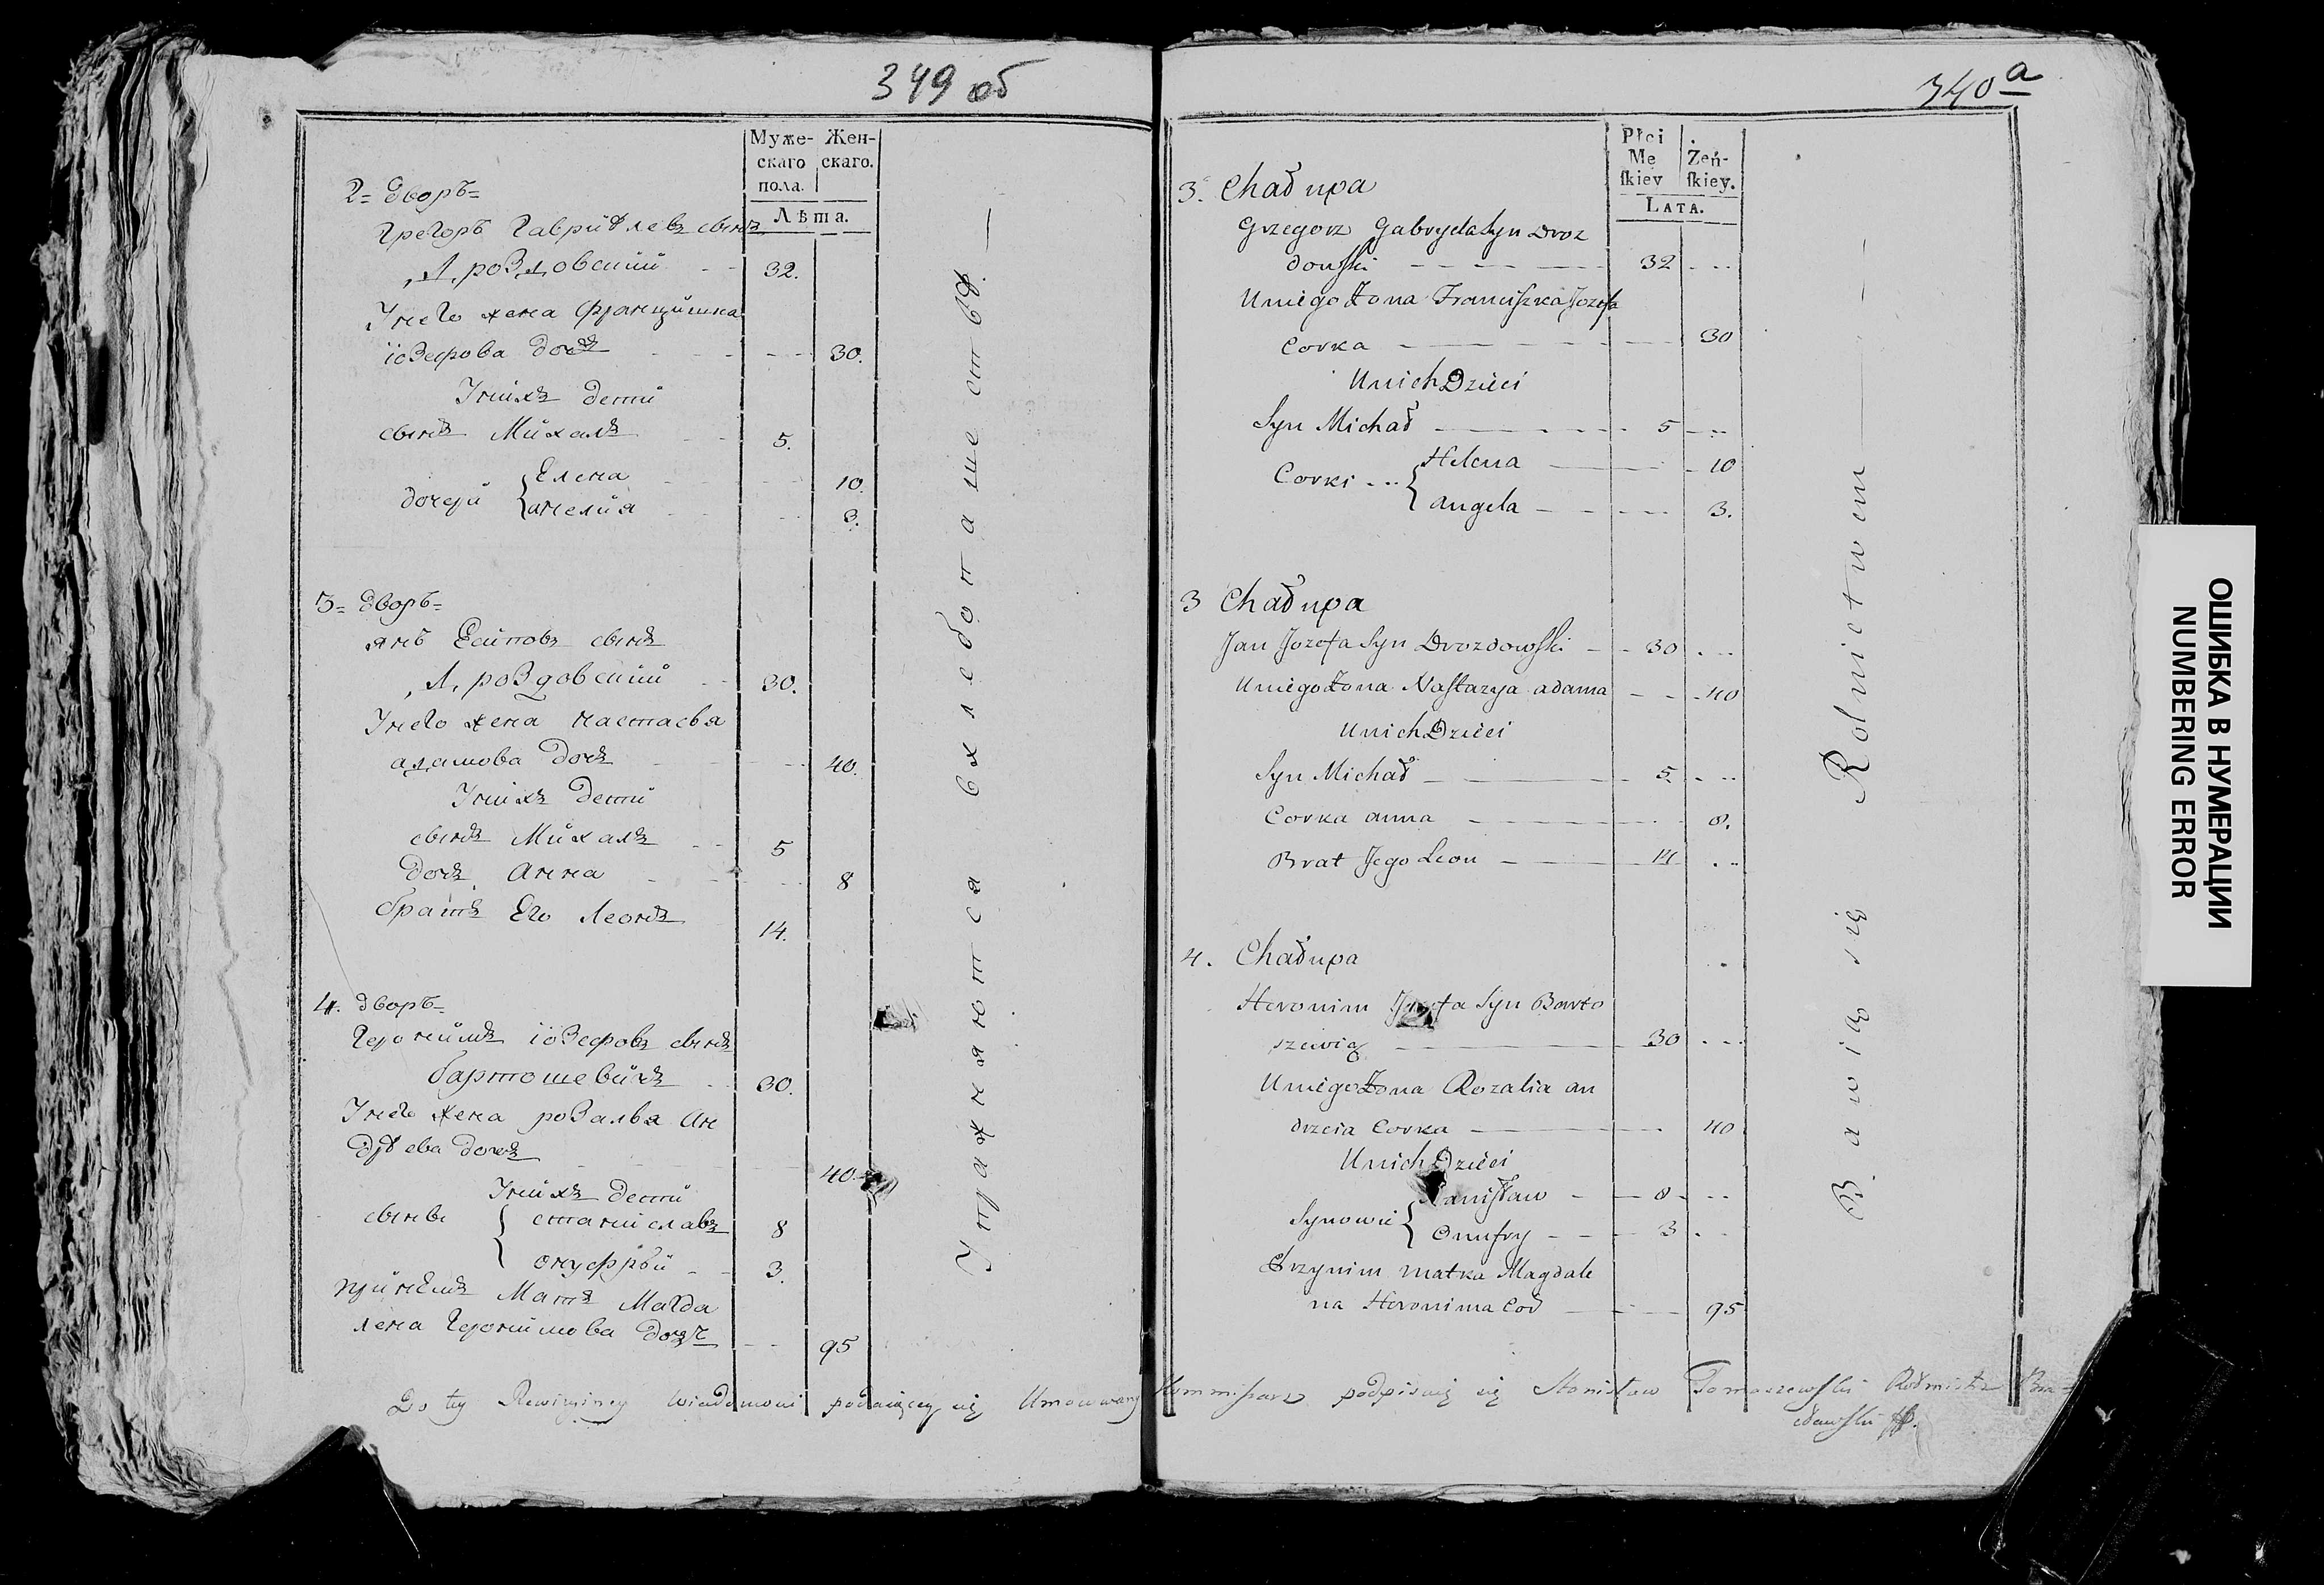 349 об
Муже- Жен-
скаго скаго.
пола.
Лѣта.
2= дворъ=
Грегоръ Гаврiѣлевъ сынъ
Дроздовскiй 32.
Унего жена Францишка
iозефова дочь 30.
Унихъ дети
сынъ Михалъ 5.
дочери Елена 10.
анелия 3.
3= дворъ=
янъ Есиповъ сынъ
Дроздовскiй 30.
Унего жена настасья
адамова дочь 40.
Унихъ дети
сынъ Михалъ 5
дочь Анна 8
братъ Его Леонъ 14.
4. дворъ=
Геронимъ iозефовъ сынъ
бартошевичъ 30.
Унего жена розалья Ан
дрѣева дочь 40.
Унихъ дети
сыны станиславъ 8
онуфрый 3.
принемъ Мать Магда
лена Геронимова дочь 95
Упражняются вхлебопашествѣ.
340 а
Płci
Me Żeń-
ſkiey ſkiey.
LATA.
3. Chałupa
Grzegorz Gabryela Syn Droz
dowſki 32
Uniego Żona Franciſzka Jozefa
Corka 30
Unich Dzieci
Syn Michał 5
Corki Helena 10
Angela 3.
3 Chałupa
Jan Jozefa Syn Drozdowſki 30
Uniego Żona Naſtazya adama 40
Unich Dzieci
Syn Michał 5.
Corka anna 8.
Brat Jego Leon 14
4. Chałupa
Heronim Jozefa Syn Barto
szewicz 30
Uniego Żona Rozalia an
drzeia Corka 40
Unich Dzieci
Synowie Staniſław 8
Onufry 3
Przynim matka Magdale
na Heronima Cor 95
Bawią się Rolnictwem
Do tey Rewizyiney Wiadomosci podaiącey się Umocowany Kommiſsarz podpisuię się Stanisław Tomaszewſki Rotmistrz Bra=
cławſki
ОШИБКА В НУМЕРАЦИИ
NUMBERING ERROR